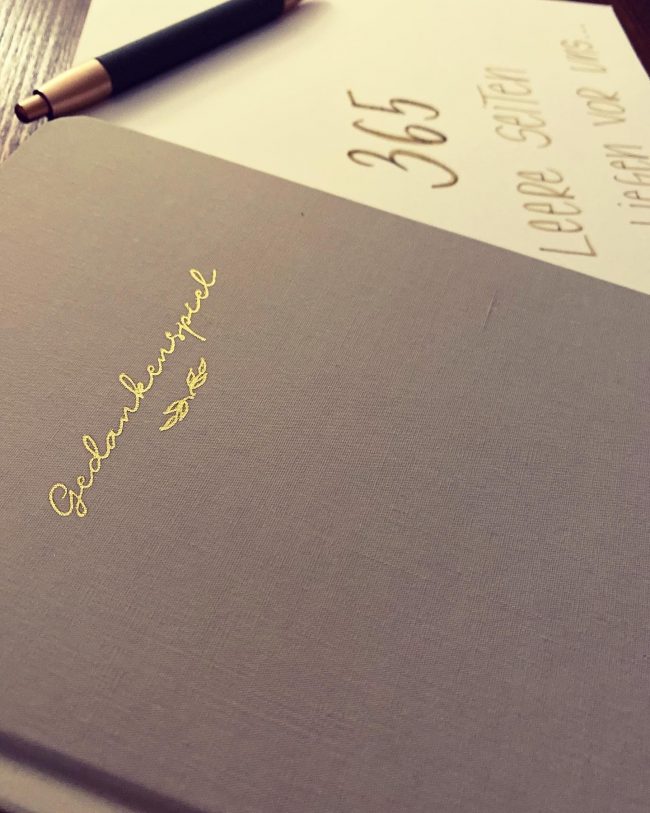 Gedankenspiel
365
LEERE SEITEN
LIEGEN VOR UNS...